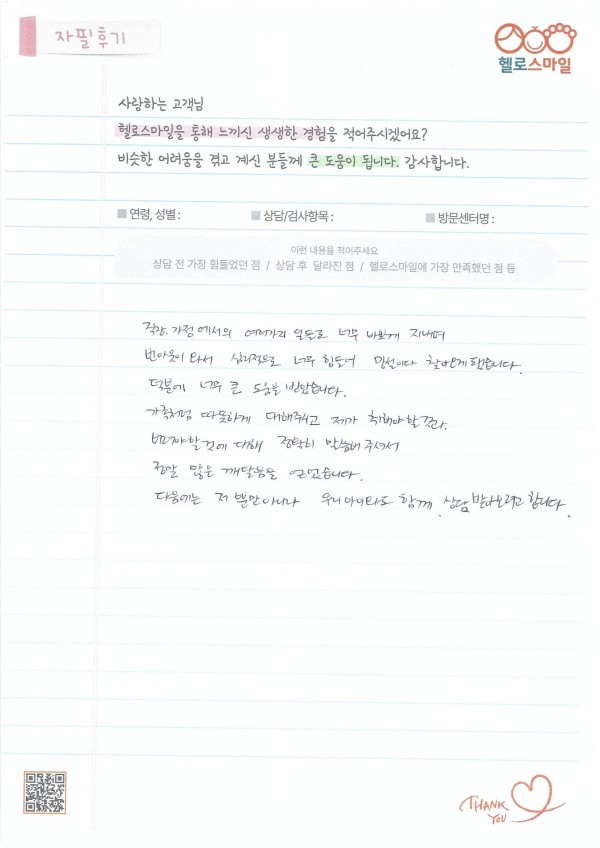 자필후기
헬로스마일
사랑하는 고객님
헬로스마일을 통해 느끼신 생생한 경험을 적어주시겠어요?
비슷한 어려움을 겪고 계신 분들께 큰 도움이 됩니다. 감사합니다.
연령, 성별 : 상담/검사항목 : 방문센터명 :
이런 내용을 적어주세요
상담 전 가장 힘들었던 점 / 상담 후 달라진 점 / 헬로스마일에 가장 만족했던 점 등
직장, 가정에서의 여러가지 일들로 너무 바쁘게 지내며
번아웃이 와서 심리적으로 너무 힘들어 망설이다 찾아오게 됐습니다.
덕분에 너무 큰 도움을 받았습니다.
가족처럼 따뜻하게 대해주고 제가 취해야 할 것과.
버려야할것에 대해 정확히 말씀해 주셔서
정말 많은 깨달음을 얻었습니다.
다음에는 저 뿐만 아니라 우리 아이와도 함께 상담 받아보려고 합니다.
THANK
YOU